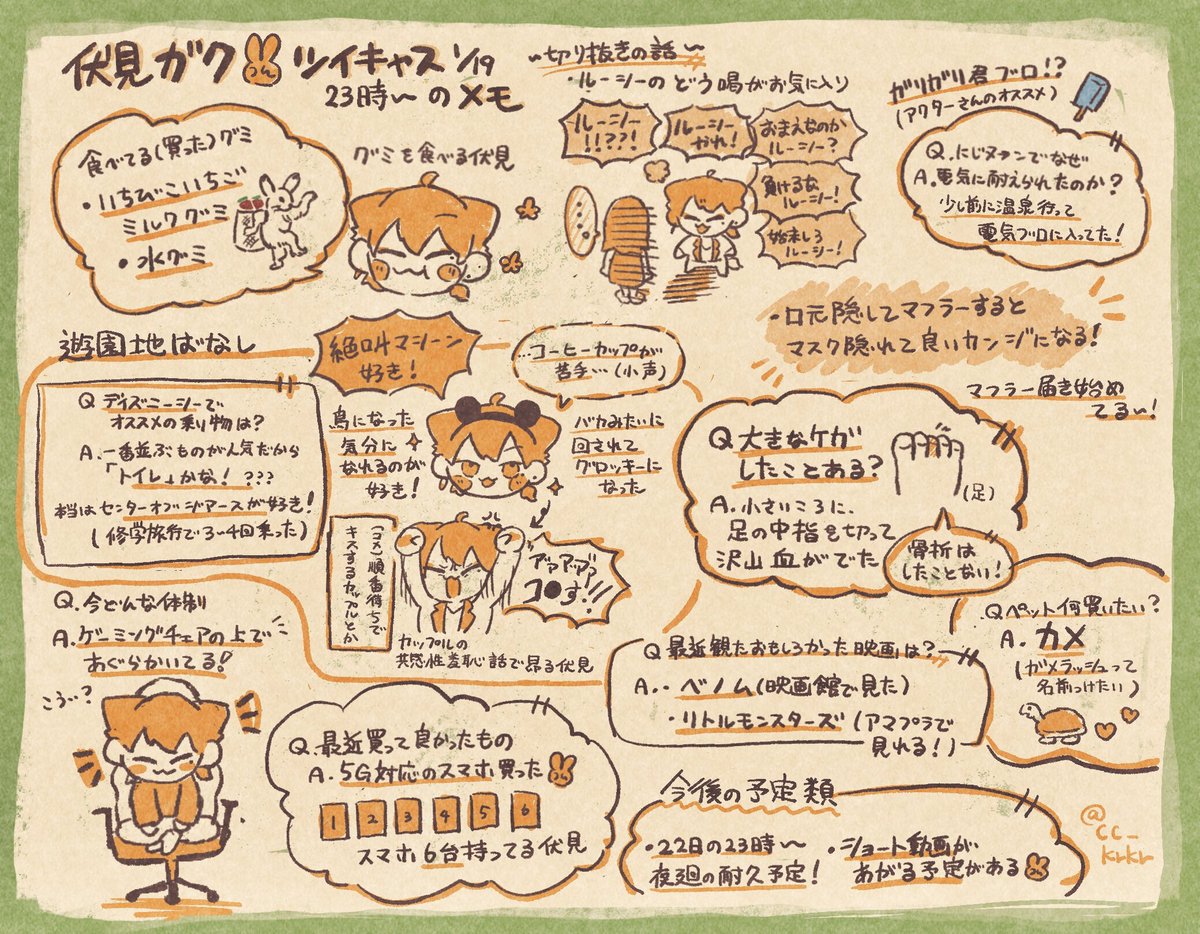 伏見ガク ツイキャス 1/19
23時〜のメモ
食べてる(買った)グミ
・いちびこいちご
ミルクグミ
・水グミ
グミを食べる伏見
〜切り抜きの話〜
・ルーシーのどう喝がお気に入り
ルーシー
!!??!
ルーシー
やれ!
おまえなのか
ルーシー?
負けるな
ルーシー!
始末しろ
ルーシー!
ガリガリ君ブロ!?
(アクターさんのオススメ)
Q.にじヌーンでなぜ
A.電気に耐えられたのか?
少し前に温泉行って
電気ブロに入ってた!
・口元隠してマフラーすると
マスク隠れて良いカンジになる!
マフラー届き始め
てるぃ!
遊園地ばなし
絶叫マシーン
好き!
…コーヒーカップが
苦手…(小声)
Q ディズニーシーで
オススメの乗り物は?
A.一番並ぶものが人気だから
「トイレ」かな! ???
本当はセンターオブジアースが好き!
(修学旅行で3〜4回乗った)
鳥になった
気分に
なれるのが
好き!
バカみたいに
回されて
グロッキーに
なった
(コメ)順番待ちで
キスするカップルとか
アァアァヴァ
コ●す!!!
カップルの
共感性羞恥話で昂る伏見
Q 大きなケガ
したことある?
A.小さいころに、
足の中指を切って
沢山血がでた
(足)
骨折は
したことない!
Q.今どんな体制
A.ゲーミングチェアの上で
あぐらかいてる!
こう…?
Q.最近買って良かったもの
A.5G対応のスマホ買った
1 2 3 4 5 6
スマホ6台持ってる伏見
Q 最近観たおもしろかった映画は?
A.・ベノム(映画館で見た)
・リトルモンスターズ(アマプラで
見れる!)
Qペット何買いたい?
A.カメ
(ガメラッシュって
名前つけたい)
今後の予定類
・22日の23時〜
夜廻の耐久予定!
・ショート動画が
あがる予定がある
@cc_
krkr